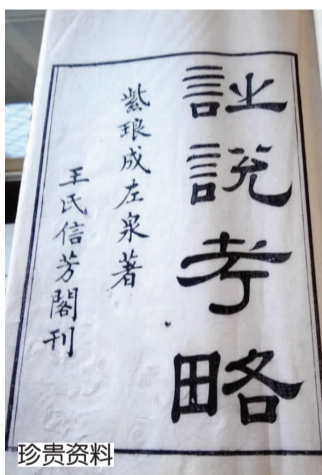 詩說考略
紫琅成左泉著
王氏信芳閣刊
珍贵资料